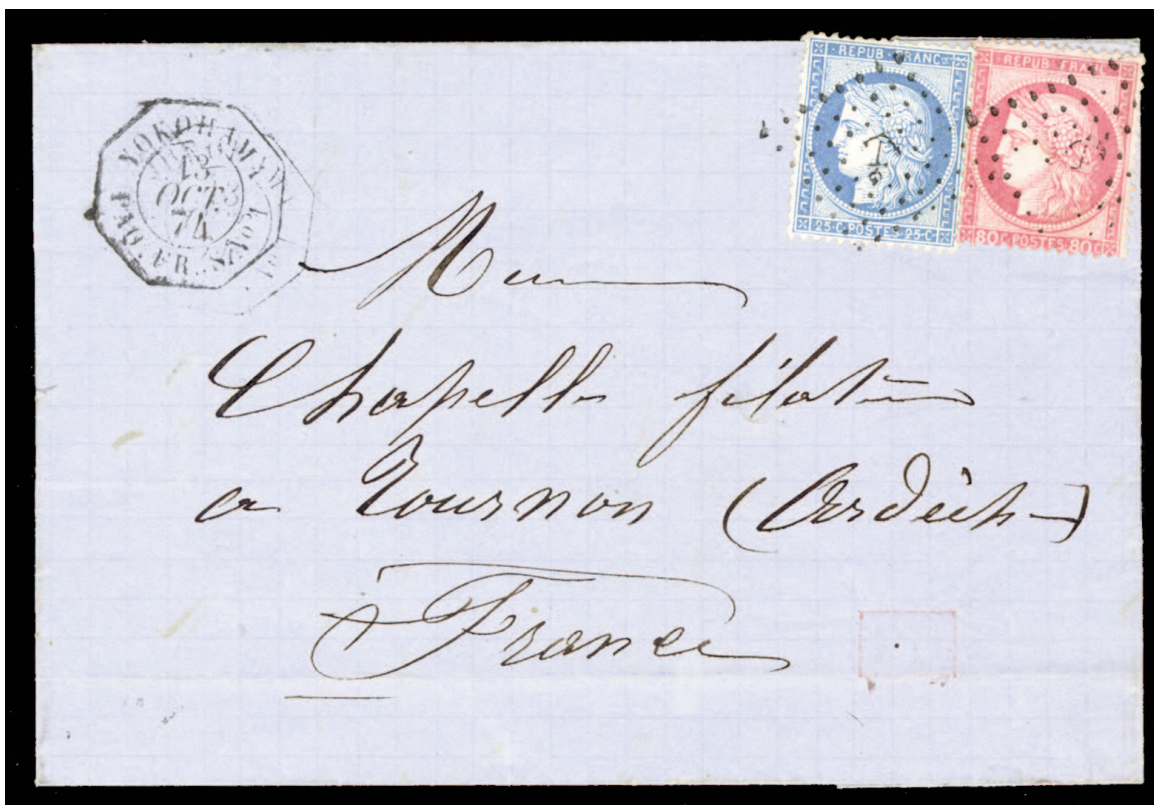 YOKOHAMA
13
OCT
74
PAQ. FR. N No 1
REPUB FRANC
25 C POSTES 25 C
REPUB FRANC
80 C POSTES 80 C
Chapelle filateur
a Tournon (Ardèche)
France